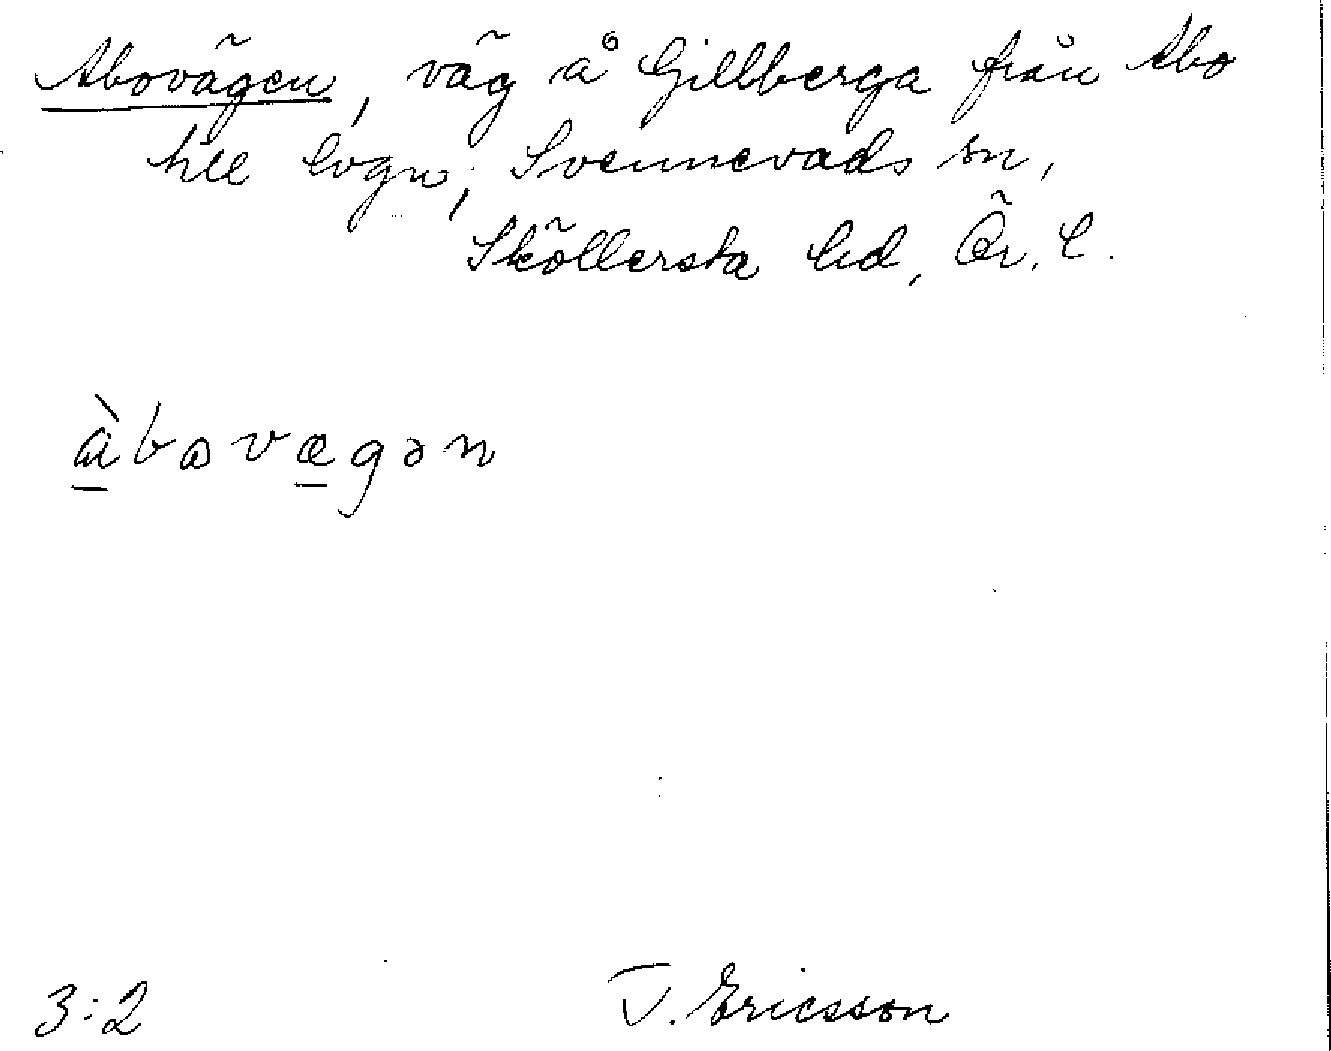 Abovägen, väg å Gillberga från Abo
till lvgn; Svennevads sn,
Sköllersta hd, Ör. l.
àbovægən
3:2 T. Ericsson